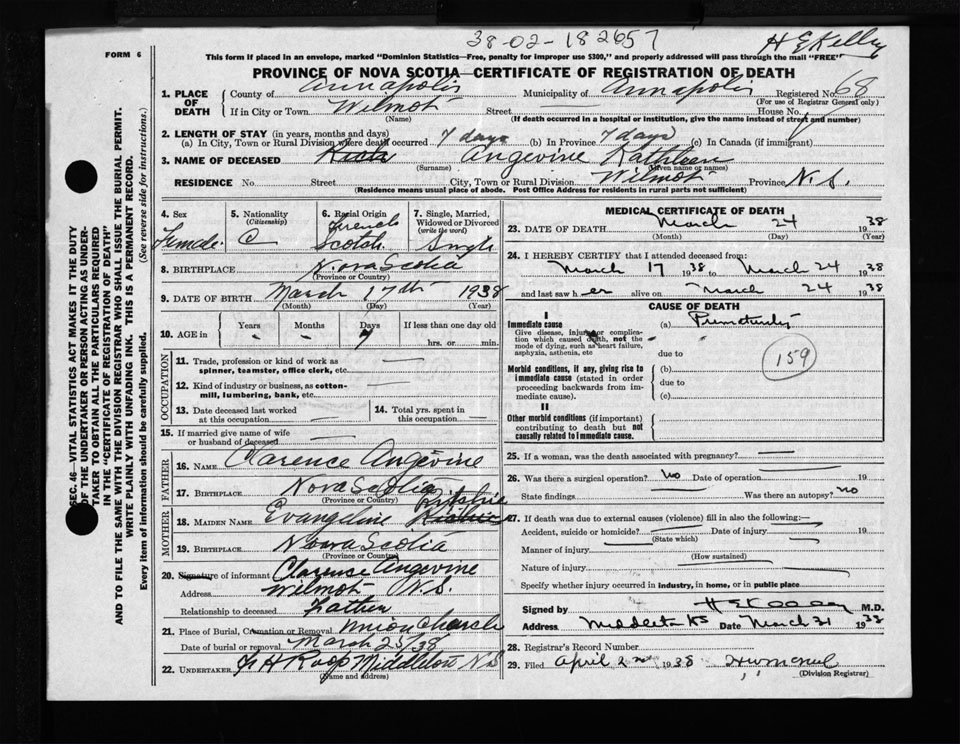 38-02-182657
H E Kelley
FORM 6
This form if placed in an envelope, marked "Dominion Statistics—Free, penalty for improper use $300," and properly addressed will pass through the mail "FREE"
PROVINCE OF NOVA SCOTIA—CERTIFICATE OF REGISTRATION OF DEATH
1. PLACE OF DEATH County of Annapolis Municipality of Annapolis Registered No. 68
(For use of Registrar General only)
If in City or Town Wilmot Street House No.
(Name) (If death occurred in a hospital or institution, give the name instead of street and number)
2. LENGTH OF STAY (in years, months and days)
(a) In City, Town or Rural Division where death occurred 7 days (b) In Province 7 days (c) In Canada (if immigrant)
3. NAME OF DECEASED Angevine Kathleen
(Surname) (Given name or names)
RESIDENCE No. Street City, Town or Rural Division Wilmot Province N.S.
(Residence means usual place of abode. Post Office Address for residents of rural parts not sufficient)
SEC. 46—VITAL STATISTICS ACT MAKES IT THE DUTY
OF THE UNDERTAKER OR PERSON ACTING AS UNDER-
TAKER TO OBTAIN ALL THE PARTICULARS REQUIRED
IN THE "CERTIFICATE OF REGISTRATION OF DEATH"
AND TO FILE THE SAME WITH THE DIVISION REGISTRAR WHO SHALL ISSUE THE BURIAL PERMIT.
WRITE PLAINLY WITH UNFADING INK. THIS IS A PERMANENT RECORD.
Every item of information should be carefully supplied. (See reverse side for instructions.)
4. Sex Female
5. Nationality (Citizenship) C
6. Racial Origin French Scotch
7. Single, Married, Widowed or Divorced (write the word) Single
8. BIRTHPLACE Nova Scotia
(Province or Country)
9. DATE OF BIRTH March 17th 1938
(Month) (Day) (Year)
10. AGE in Years Months Days 7 If less than one day old
hrs. or min.
OCCUPATION
11. Trade, profession or kind of work as
spinner, teamster, office clerk, etc.
12. Kind of industry or business, as cotton-
mill, lumbering, bank, etc.
13. Date deceased last worked
at this occupation
14. Total yrs. spent in
this occupation
15. If married give name of wife
or husband of deceased
FATHER
16. NAME Clarence Angevine
17. BIRTHPLACE Nova Scotia
(Province or Country)
MOTHER
18. MAIDEN NAME Evangeline Ritchie
19. BIRTHPLACE Nova Scotia
(Province or Country)
20. Signature of informant Clarence Angevine
Address Wilmot N.S.
Relationship to deceased Father
21. Place of Burial, Cremation or Removal Union Church
Date of burial or removal March 25/38
22. UNDERTAKER H Roop Middleton N.S
(Name and address)
MEDICAL CERTIFICATE OF DEATH
23. DATE OF DEATH March 24 1938
(Month) (Day) (Year)
24. I HEREBY CERTIFY that I attended deceased from:
March 17 1938 to March 24 1938
and last saw her alive on March 24 1938
CAUSE OF DEATH
I
Immediate cause (a) Prematurity
Give disease, injury or complica-
tion which caused death, not the
mode of dying, such as heart failure,
asphyxia, asthenia, etc due to
159
Morbid conditions, if any, giving rise to (b)
immediate cause (stated in order due to
proceeding backwards from im-
mediate cause). (c)
II
Other morbid conditions (if important)
contributing to death but not
causally related to immediate cause.
25. If a woman, was the death associated with pregnancy?
26. Was there a surgical operation? no Date of operation 19
State findings Was there an autopsy? no
27. If death was due to external causes (violence) fill in also the following:
Accident, suicide or homicide? Date of injury 19
(State which)
Manner of injury
(How sustained)
Nature of injury
Specify whether injury occurred in industry, in home, or in public place
Signed by H E Kelley M.D.
Address Middleton NS Date March 31 1938
28. Registrar's Record Number
29. Filed April 2nd 1938
(Division Registrar)